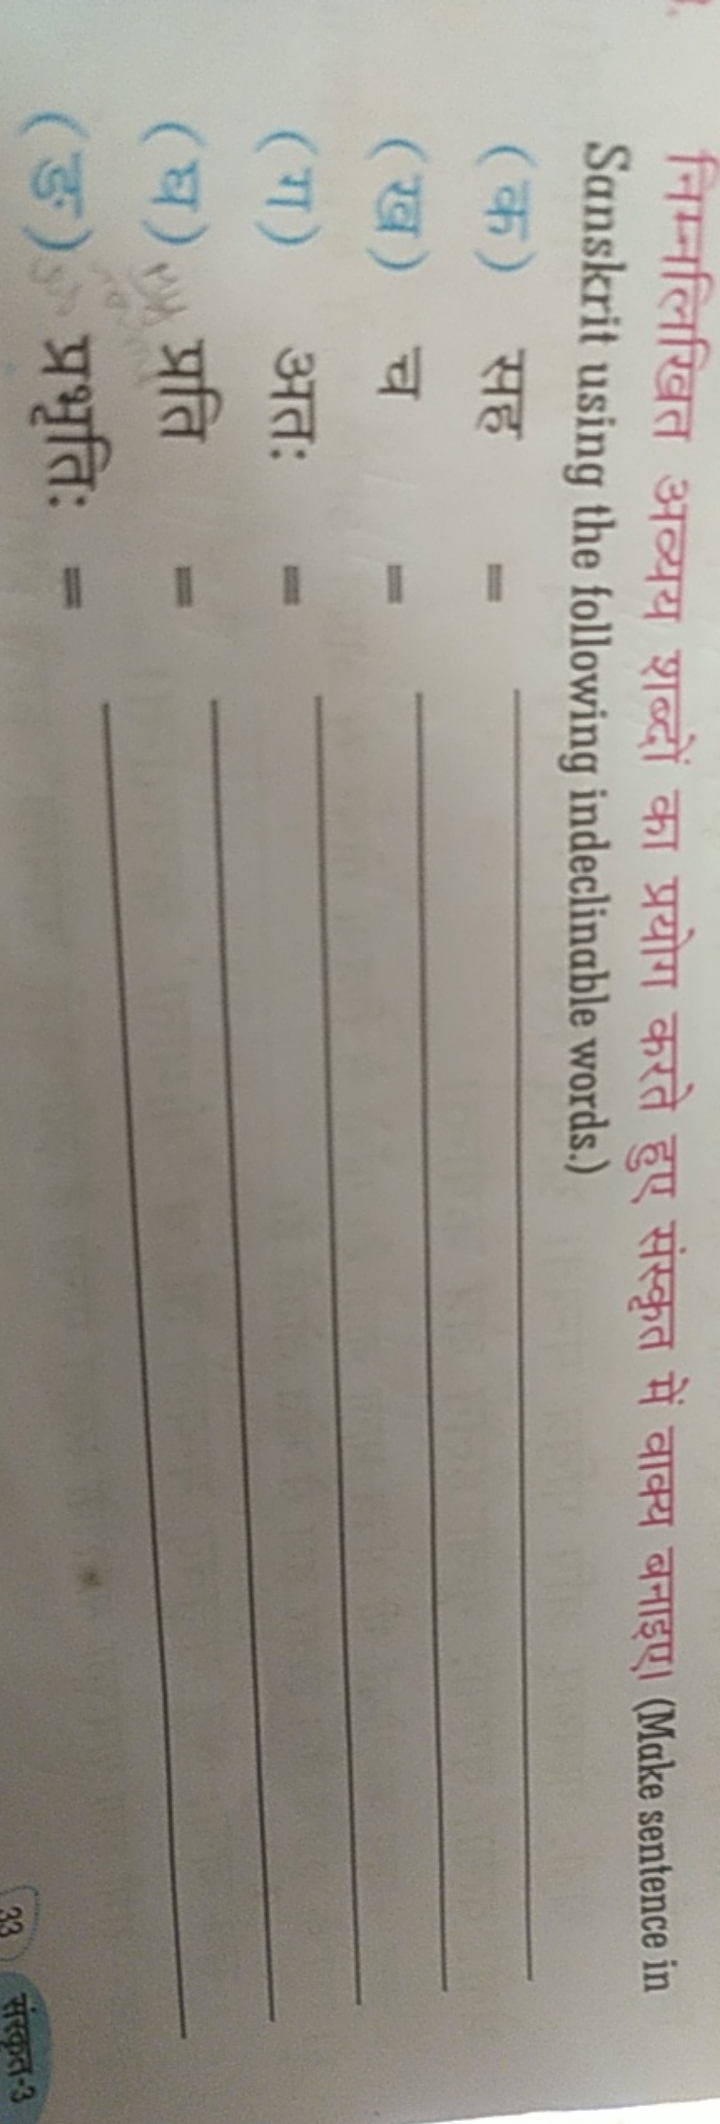 निम्नलिखित अव्यय शब्दों का प्रयोग करते हुए संस्कृत में वाक्य बनाइए। (Make sentence in
Sanskrit using the following indeclinable words.)
(क) सह =
(ख) च =
(ग) अतः =
(घ) प्रति =
(ङ) प्रभृतिः =
33 संस्कृत-3